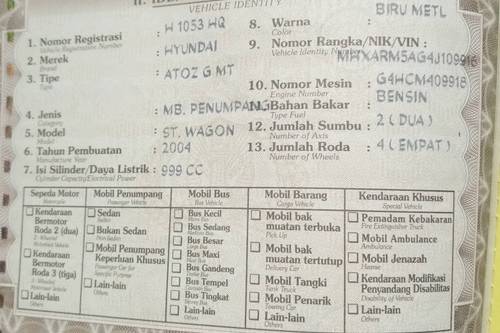 II. IDE
VEHICLE IDENTITY
1. Nomor Registrasi : H 1053 HQ
Vehicle Registration Number
2. Merek : HYUNDAI
Brand
3. Tipe : ATOZ G MT
Type
4. Jenis : MB. PENUMPANG
Category
5. Model : ST. WAGON
Model
6. Tahun Pembuatan : 2004
Manufacture Year
7. Isi Silinder/Daya Listrik : 999 CC
Cylinder Capacity/Electrical Power
8. Warna : BIRU METL
Color
9. Nomor Rangka/NIK/VIN :
Vehicle Identity Number
MHXARM5AG4J109916
10. Nomor Mesin : G4HCM409918
Engine Number
11. Bahan Bakar : BENSIN
Type Fuel
12. Jumlah Sumbu : 2 ( DUA )
Number of Axis
13. Jumlah Roda : 4 ( EMPAT )
Number of Wheels
Sepeda Motor
Motorcycle
Kendaraan
Bermotor
Roda 2 (dua)
Kendaraan
Bermotor
Roda 3 (tiga)
Lain-lain
Others
Mobil Penumpang
Passenger Vehicle
Sedan
Sedan
Bukan Sedan
Non Sedan
Mobil Penumpang
Keperluan Khusus
Passenger Car for
Specific Purpose
Lain-lain
Others
Mobil Bus
Bus Vehicle
Bus Kecil
Bus Sedang
Bus Besar
Bus Maxi
Bus Gandeng
Bus Tempel
Bus Tingkat
Lain-lain
Others
Mobil Barang
Cargo Vehicle
Mobil bak
muatan terbuka
Pick Up
Mobil bak
muatan tertutup
Delivery Car
Mobil Tangki
Tank Truck
Mobil Penarik
Towing Car
Lain-lain
Others
Kendaraan Khusus
Special Vehicle
Pemadam Kebakaran
Fire Extinguisher Truck
Mobil Ambulance
Ambulance
Mobil Jenazah
Hearse
Kendaraan Modifikasi
Penyandang Disabilitas
Disability of Vehicle
Lain-lain
Others